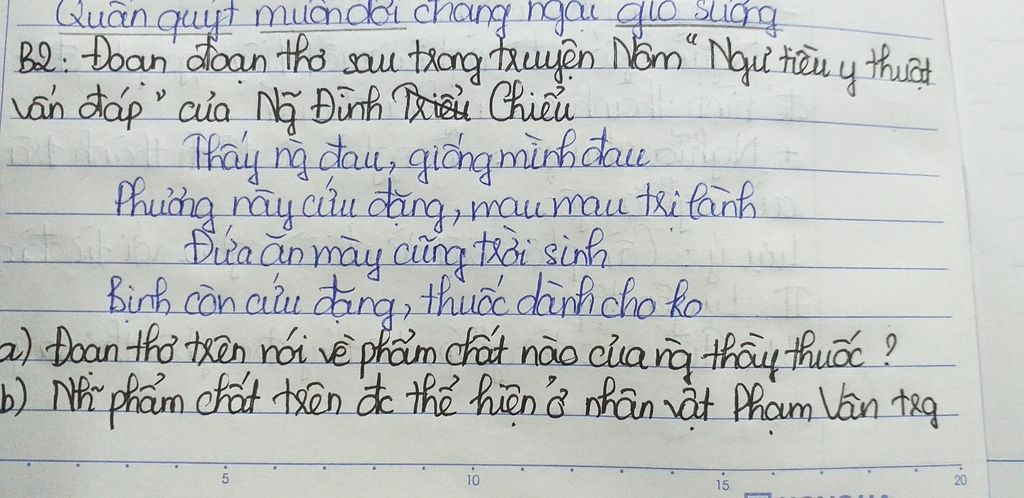 Quấn quýt muôn đời chẳng ngại gió sương
B2: Đoạn đoạn thơ sau trong truyện Nôm "Ngư tiều y thuật
vấn đáp" của Ng̃ Đình Triểu Chiểu
Thấy ng̀ đau, giống mình đau
Phương nào cứu đặng, mau mau trị lành
Đứa ăn mày cũng trời sinh
Bịnh còn cứu đặng, thuốc dành cho ko
a) Đoạn thơ trên nói về phẩm chất nào của ng̀ thầy thuốc?
b) Nh̃ phẩm chất trên đc thể hiện ở nhân vật Phạm Văn trg
5 10 15 20